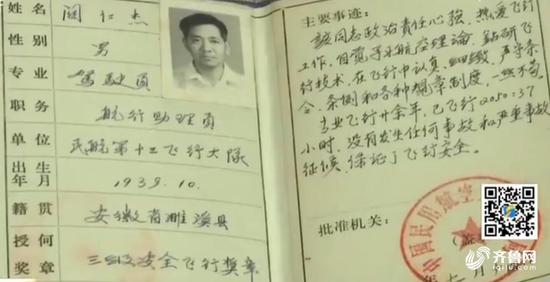 姓名 阎仁杰
性别 男
专业 驾驶员
职务 航行助理员
单位 民航第十三飞行大队
出生年月 1939.10.
籍贯 安徽省濉溪县
授何奖章 三级安全飞行奖章
主要事迹:
该同志政治责任心强,热爱飞行
工作,自觉学习航空理论,钻研飞
行技术,在飞行中认真、细致,严守条
令、条例和各种规章制度,一丝不苟。
专业飞行廿余年,已飞行9050:37
小时,没有发生任何事故和严重事故
征候,保证了飞行安全。
批准机关:
中国民用航空
齐鲁网
iqilu.com